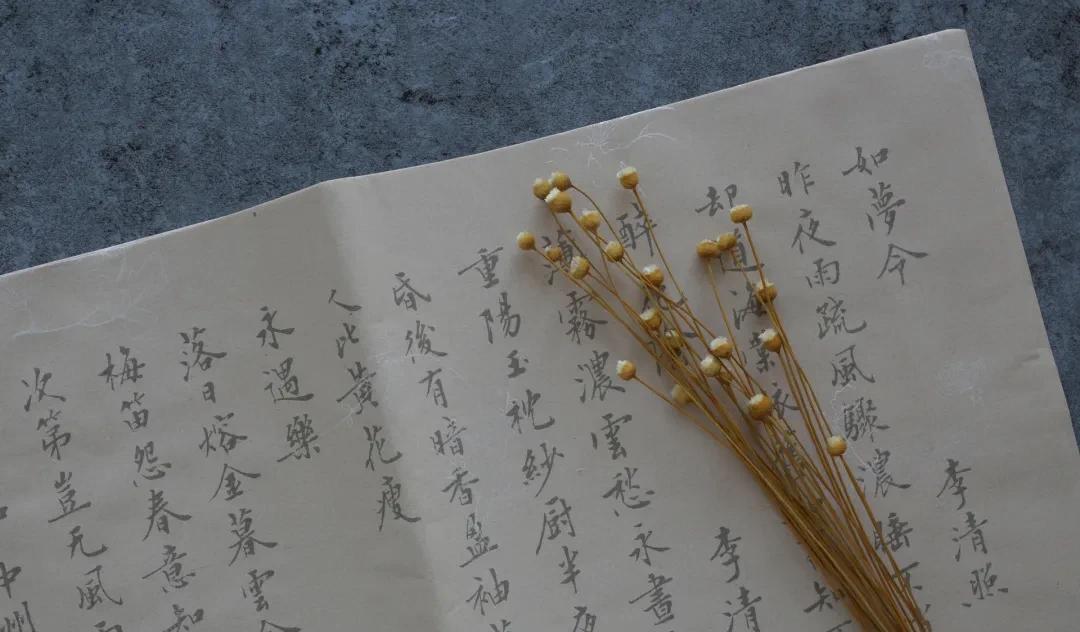 如夢令 李清照
昨夜雨疏風驟濃睡不
却道海棠依舊知
醉 李清
薄霧濃雲愁永晝
重陽玉枕紗厨半夜
昏後有暗香盈袖
人比黃花瘦
永遇樂
落日熔金暮雲合
梅笛怨春意知
次第豈无風雨
中州